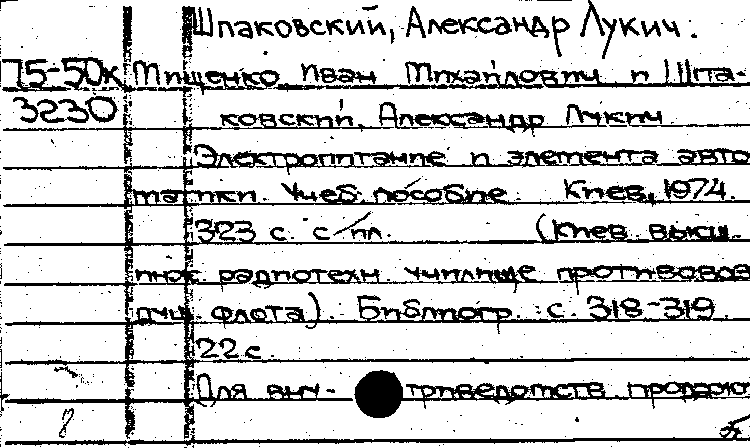 Шпаковский, Александр Лукич.
75-50к Мищенко, Иван Михайлович и Шпа-
3230 ковский, Александр Лукич
Электропитание и элемента авто
матики. Учеб. пособие. Киев, 1974.
323 с. с ил. (Киев. высш.
инж. радиотехн. училище противовоз
душ. флота). Библиогр.: с. 318-319
22 с.
Для вну- триведомств продажи
8